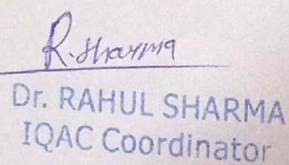 R. Sharma
Dr. RAHUL SHARMA
IQAC Coordinator